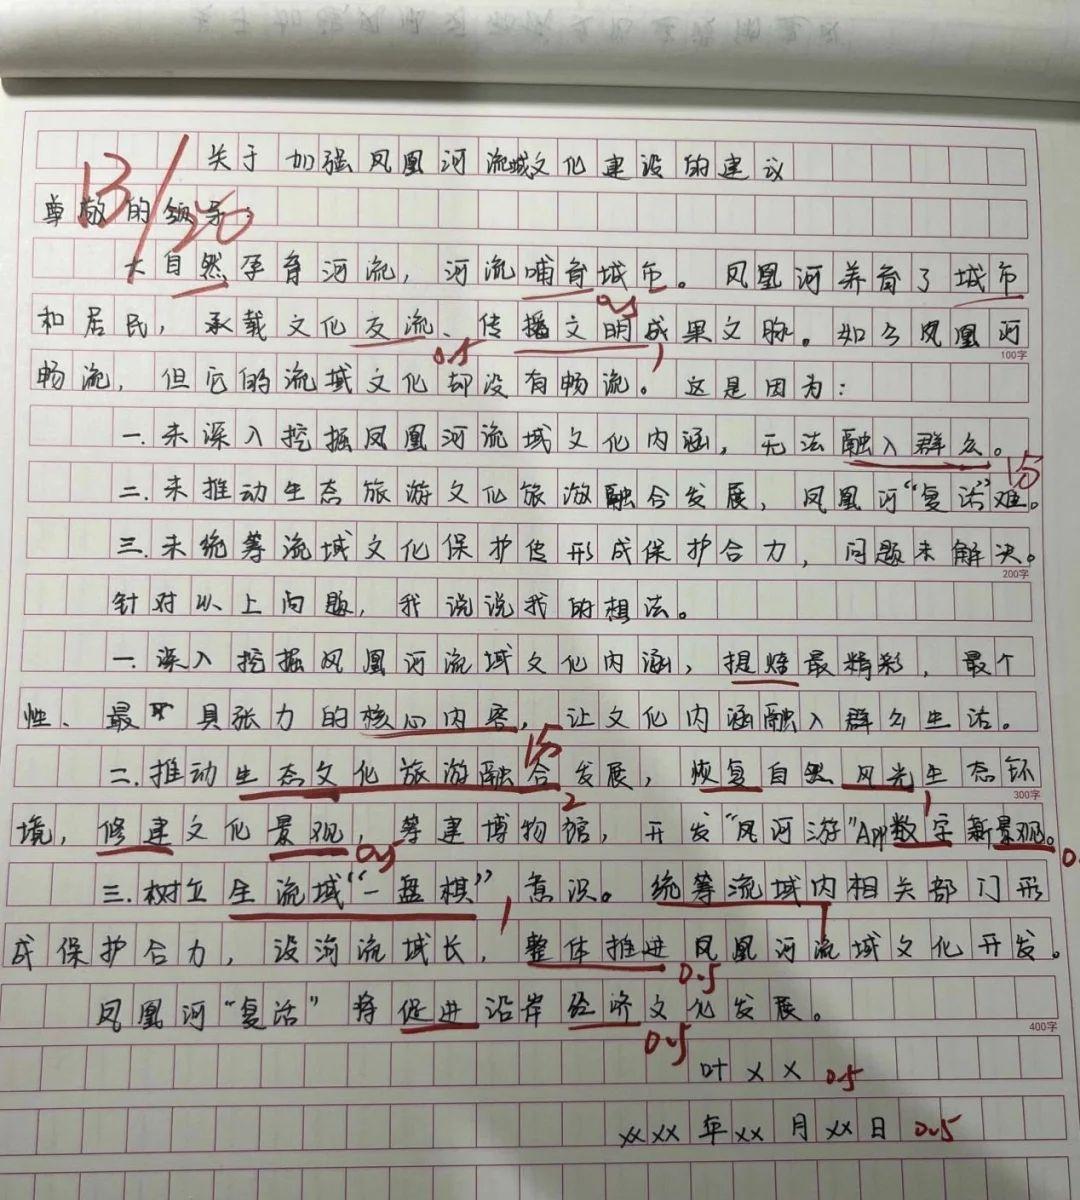 关于加强凤凰河流域文化建设的建议
13/20
尊敬的领导:
大自然孕育河流,河流哺育城市。凤凰河养育了城市
0.5
和居民,承载文化交流、传播文明成果文脉。如今凤凰河
0.5 1
100字
畅流,但它的流域文化却没有畅流。这是因为:
一.未深入挖掘凤凰河流域文化内涵,无法融入群众。
15
二.未推动生态旅游文化旅游融合发展,凤凰河“复活”难。
三.未统筹流域文化保护使形成保护合力,问题未解决。
200字
针对以上问题,我说说我的想法。
一.深入挖掘凤凰河流域文化内涵,提炼最精彩,最个
性、最具张力的核心内容,让文化内涵融入群众生活。
15
二.推动生态文化旅游融合发展,恢复自然风光生态环
2 1
300字
境,修建文化景观,筹建博物馆,开发“凤河游”App数字新景观。
0.5
三.树立生流域“一盘棋”意识。统筹流域内相关部门形
1 1
成保护合力,设河流域长,整体推进凤凰河流域文化开发。
0.5
凤凰河“复活”将促进沿岸经济文化发展。
400字
0.5
叶××0.5
××××年××月××日0.5